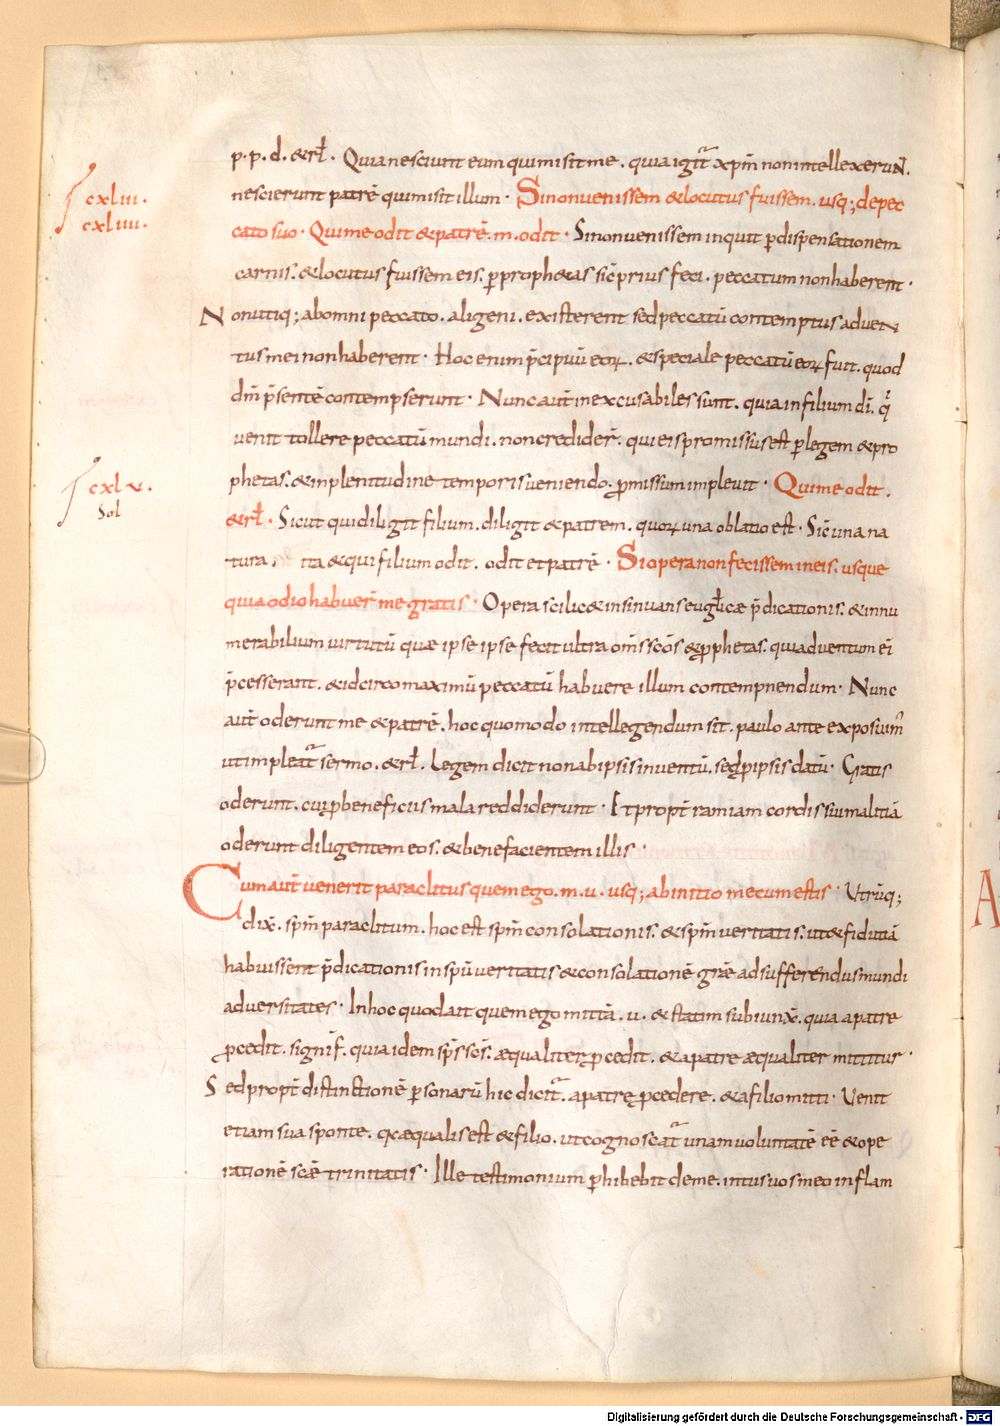 p. p. d. &rł. Quia nesciunt eum qui misit me. quia igit̄ xp̄m non intellexerun̄.
cxliii. nescierunt patrē qui misit illum. Si non venissem & locutus fuissem. usq; de pec
cxliiii. cato suo. Qui me odit & patrē. m. odit. Si non venissem inquit p̱ dispensationem
carnis. & locutus fuissem eis. p̱ prophetas sic̄ prius feci. peccatum non haberent.
Non utiq; ab omni peccato. aligeni. existerent sed peccatū contemptus adven
tus mei non haberent. Hoc enim p̄cipuū eoꝝ. & speciale peccatū eoꝝ fuit. quod
dn̄i p̄sentē contempserunt. Nunc aut̄ inexcusabiles sunt. quia in filium dī. q̇
venit tollere peccatū mundi. non credider̄. qui eis promissus est p̱ legem & pro
phetas. & in plenitudine temporis veniendo. ꝓmissum implevit. Qui me odit.
cxlv.
Sol
&rł. Sicut qui diligit filium. diligit & patrem. quoꝝ una oblatio est. Sic̄ una na
tura. ita & qui filium odit. odit et patrē. Si opera non fecissem in eis. usque
quia odio habuer̄ me gratis. Opera scilic& insinuans eugl̄icæ p̄dicationis. & innu
merabilium virtutū quæ ipse ipse fecit ultra om̄s sc̄os & ꝓphetas. qui adventum ei
p̄cesserant. & idcirco maximū peccatū habuere illum contempnendum. Nunc
aut̄ oderunt me & patrē. hoc quomodo intellegendum sit. paulo ante exposuim̄
ut impleat̄ sermo. &rł. Legem dicit non ab ipsis inventū. sed p̱ ipsis datū. Gratis
oderunt. cui ꝓ beneficiis mala reddiderunt. It propt̄ ramiam cordis sui malitiā
oderunt diligentem eos. & benefacientem illis.
Cum aut̄ venerit paraclitus quem ego. m. v. usq; ab initio mecum estis. Utrūq;
dix̄. sp̄m paraclitum. hoc est sp̄m consolationis. & sp̄m veritatis. ut & fidutiā
habuissent p̄dicationis in sp̄u veritatis & consolationē grāe ad sufferendus mundi
adversitates. In hoc quod ait quem ego mittā. v. & statim subiunx̄. quia a patre
ꝓcedit. signif̄. quia idem sp̄s sc̄s. æqualiter ꝓcedit. & a patre æqualiter mittitur.
Sed propt̄ distinctionē p̱sonarū hic dicit̄. a patre ꝓcedere. & a filio mitti. Venit
etiam sua sponte. q̄ æqualis est & filio. ut cognoscat̄ unam voluntatē eē & ope
rationē scāe trinitatis. Ille testimonium p̱hibebit de me. intus vos meo inflam
Digitalisierung gefördert durch die Deutsche Forschungsgemeinschaft - DFG